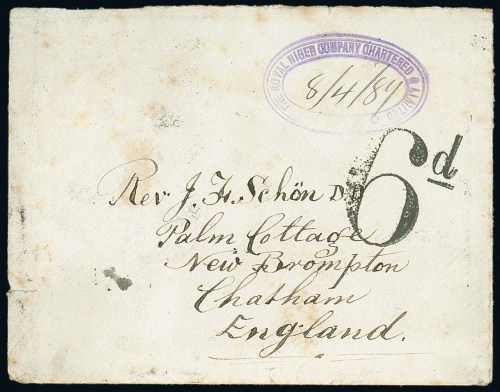 THE ROYAL NIGER COMPANY CHARTERED & LIMITED
8/4/89
6d
Rev. J. F. Schön D D
Palm Cottage
New Brompton
Chatham
England.